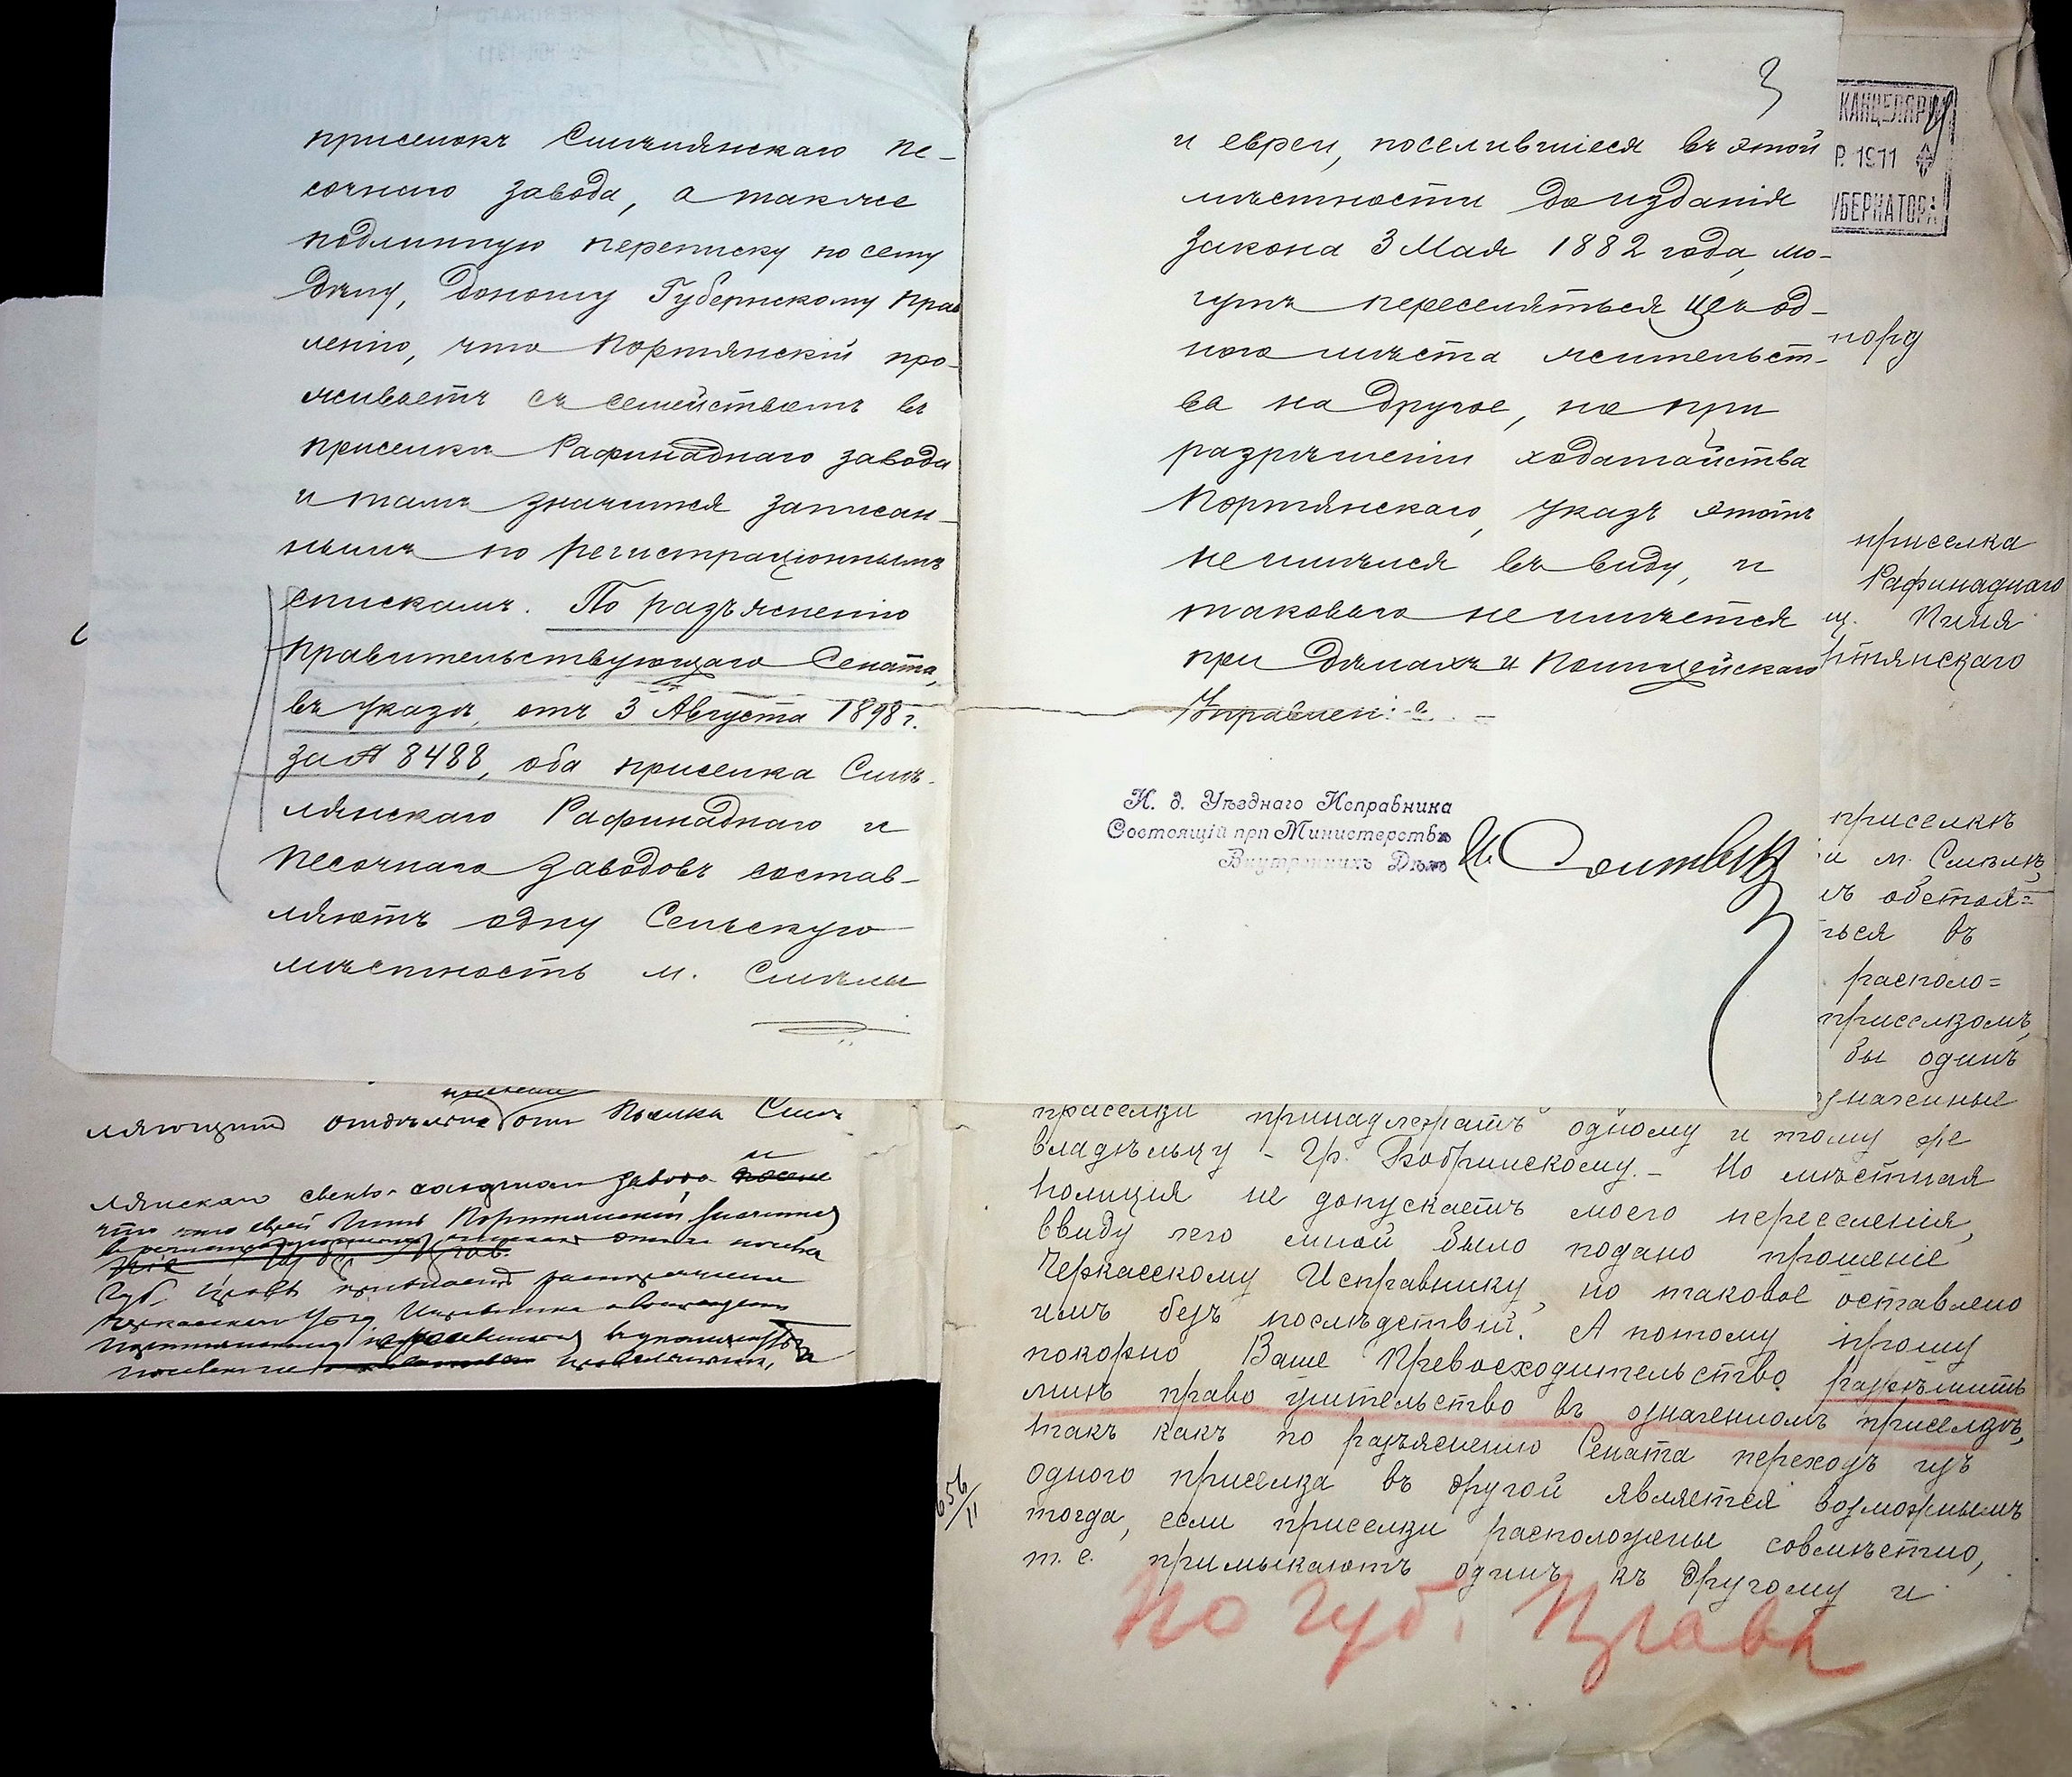 приселокъ Смѣлянскаго пе-
сочнаго завода, а также
подлинную переписку по сему
дѣлу, доношу Губернскому Прав
ленію, что Портянскій про-
живаетъ съ семействомъ въ
приселкѣ Рафинаднаго завода
и тамъ значится записан-
нымъ по регистраціоннымъ
спискамъ. По разъясненію
Правительствующаго Сената,
въ указѣ, отъ 3 Августа 1898 г.
за № 8488, оба приселка Смѣ-
лянскаго Рафинаднаго и
Песочнаго заводовъ состав-
ляютъ одну Сельскую
мѣстность м. Смѣлы
3
и евреи, поселившіеся въ этой
мѣстности до изданія
закона 3 Мая 1882 года, мо-
гутъ переселяться изъ од-
ного мѣста жительст-
ва на другое, но при
разрѣшеніи ходатайства
Портянскаго, указъ этотъ
не имѣлся въ виду, и
таковаго не имѣется
при дѣлахъ и Полицейскаго
Управлен:
И. д. Уѣзднаго Исправника
Состоящій при Министерствѣ
Внутреннихъ Дѣлъ
КАНЦЕЛЯРІ
Р. 1911
УБЕРНАТОРА
приселка
Рафинаднаго
Пиня
ртянскаго
приселкѣ
и м. Смѣлѣ,
обстоя=
ться въ
располо=
приселкомъ,
бы одинъ
значенные
приселки принадлежатъ одному и тому же
владѣльцу - Гр. Бобринскому. - Но мѣстная
полиція не допускаетъ моего переселенія,
ввиду чего мной было подано прошеніе
Черкасскому Исправнику, но таковое оставлено
имъ безъ послѣдствій. А потому прошу
покорно Ваше Превосходительство разрѣшить
мнѣ право жительство въ означенномъ приселкѣ,
такъ какъ по разъясненію Сената переходъ изъ
одного приселка въ другой является возможнымъ
тогда, если приселки расположены совмѣстно,
т. е. примыкаютъ одинъ къ другому и
По Губ. Правл
656/11
ляющимъ отдѣльное отъ
лянскаго завода
что еврей Портянскій значится
Губ. Правл.